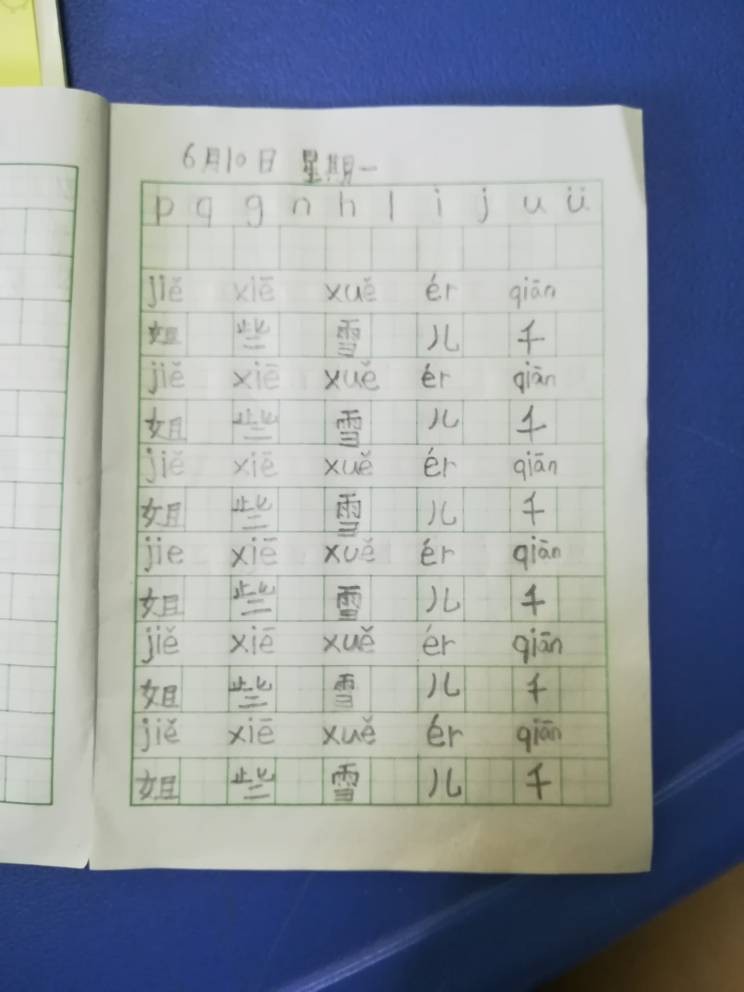 6月10日 星期一
p q g n h l i j u ü
jiě xiē xuě ér qiān
姐 些 雪 儿 千
jiě xiē xuě ér qiān
姐 些 雪 儿 千
jiě xiē xuě ér qiān
姐 些 雪 儿 千
jie xiē xuě ér qiān
姐 些 雪 儿 千
jiě xiē xuě ér qiān
姐 些 雪 儿 千
jiě xiē xuě ér qiān
姐 些 雪 儿 千